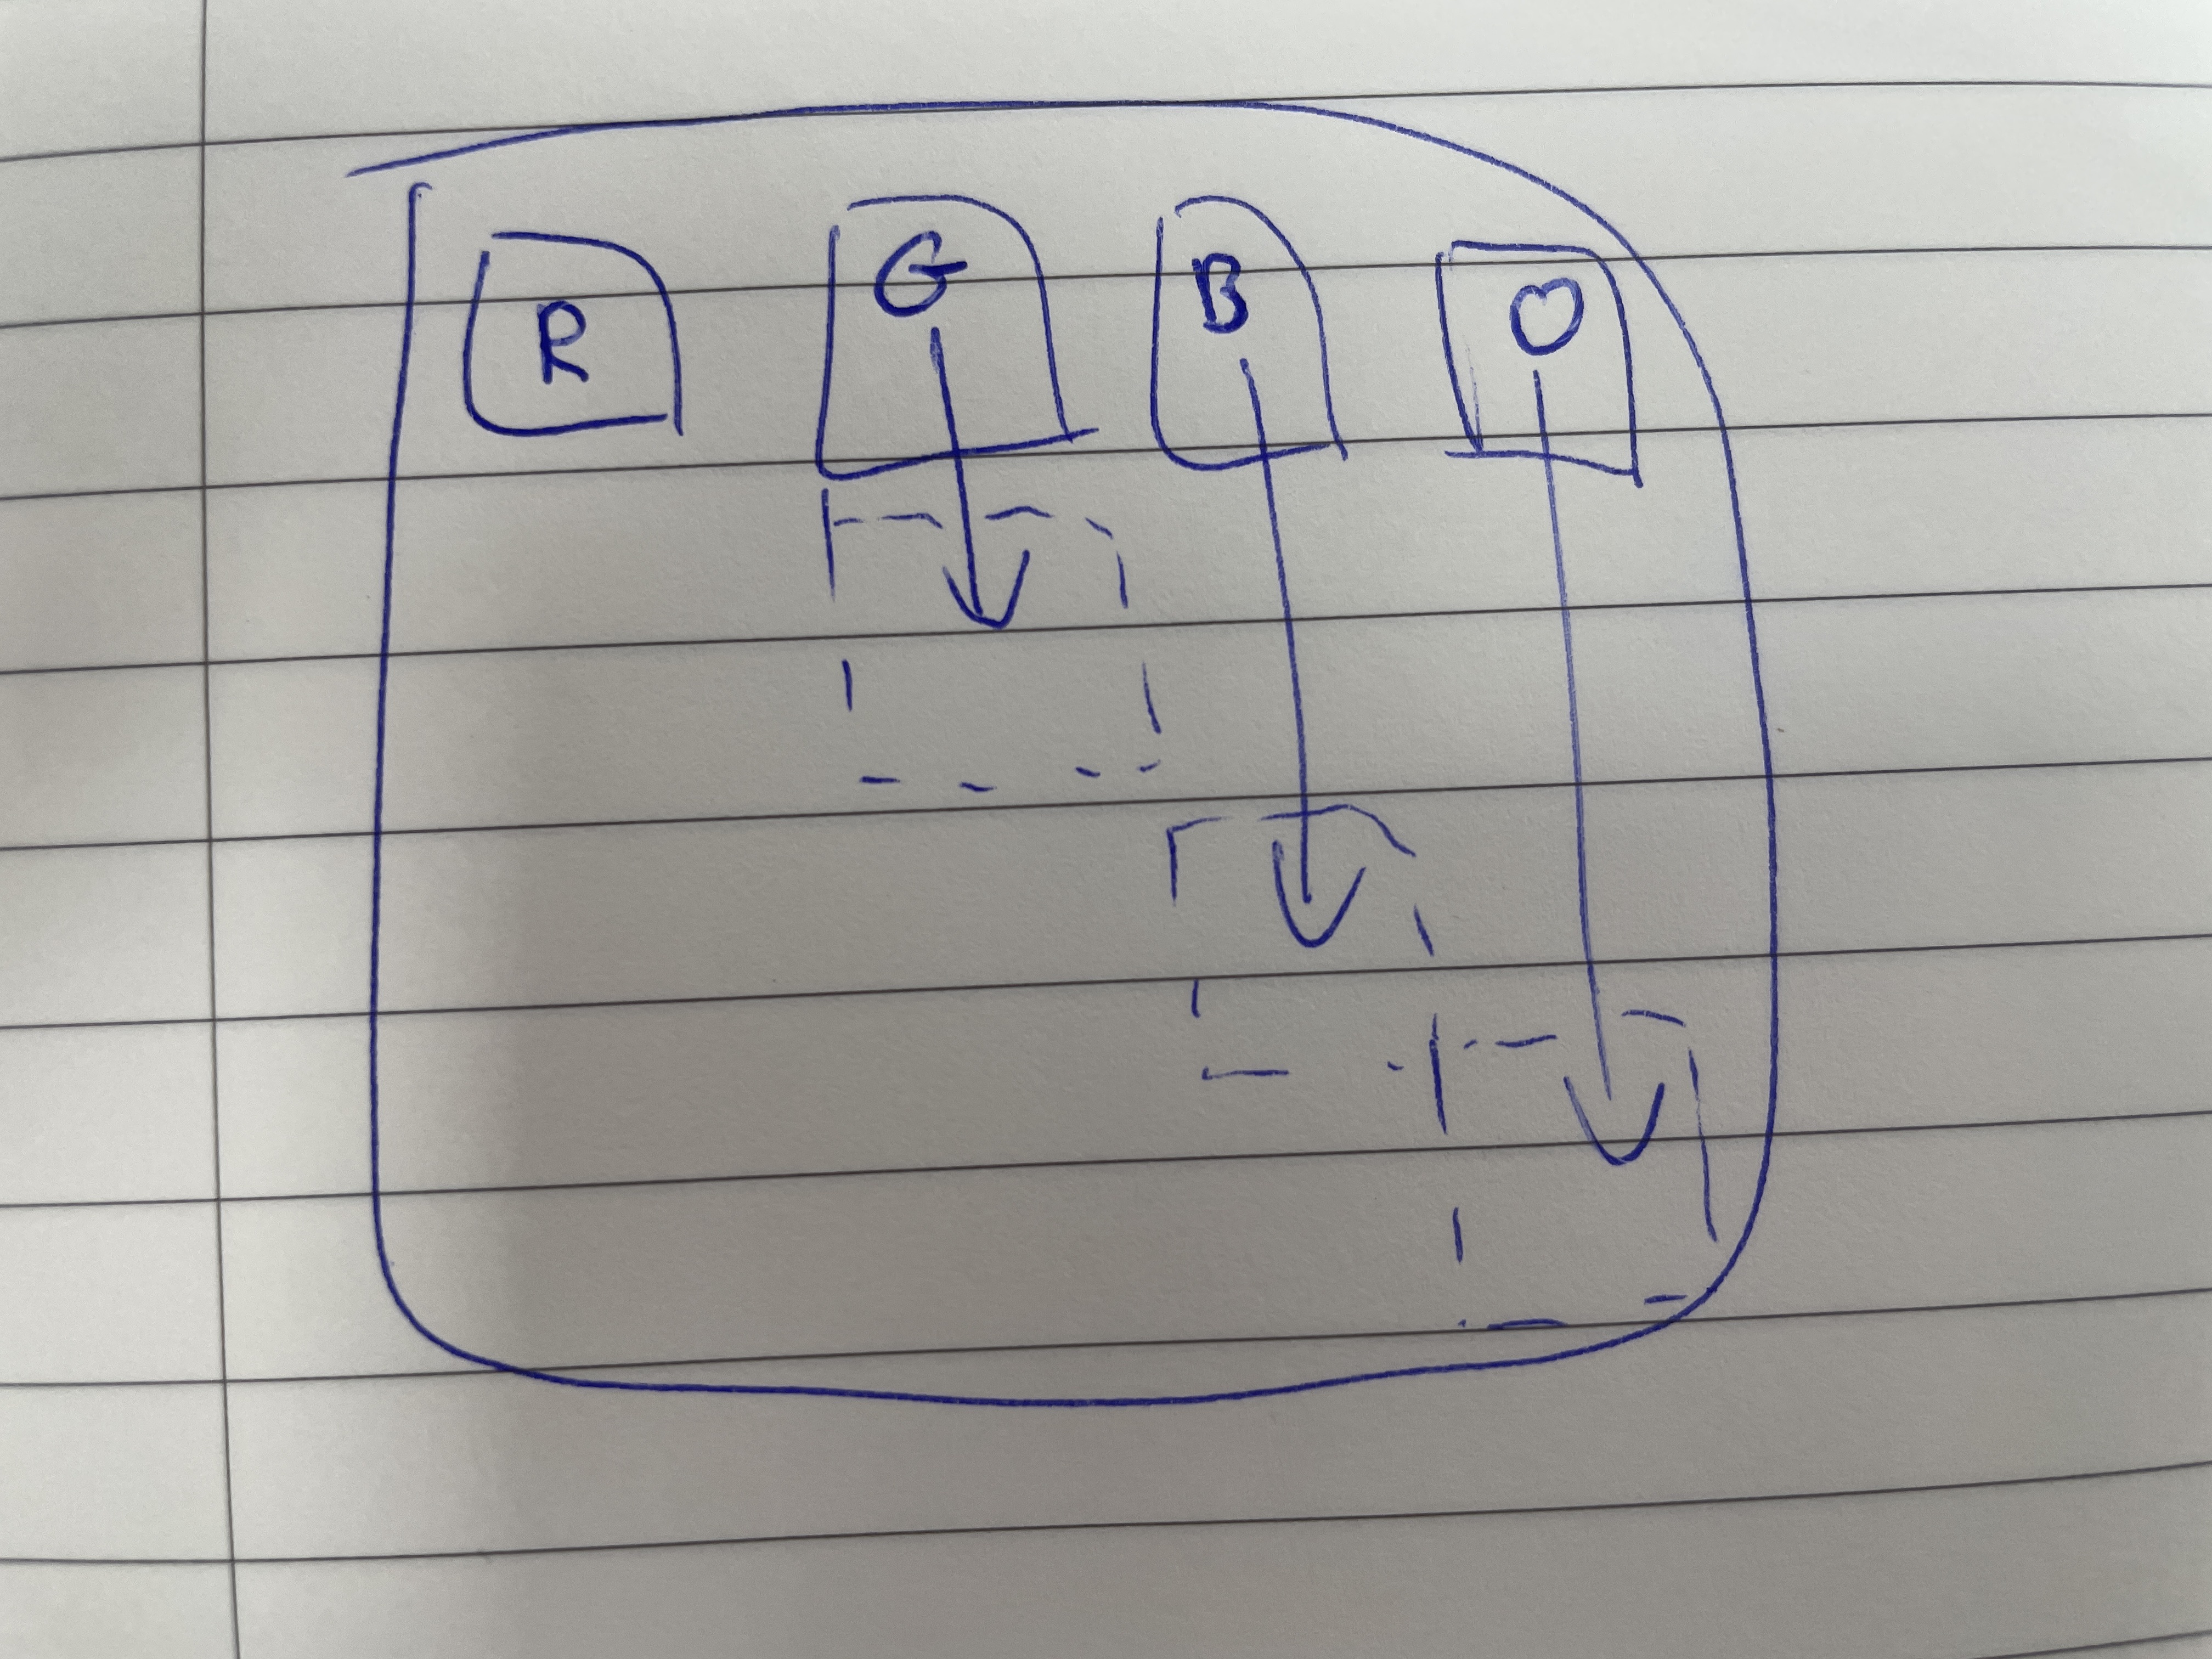 R G B O